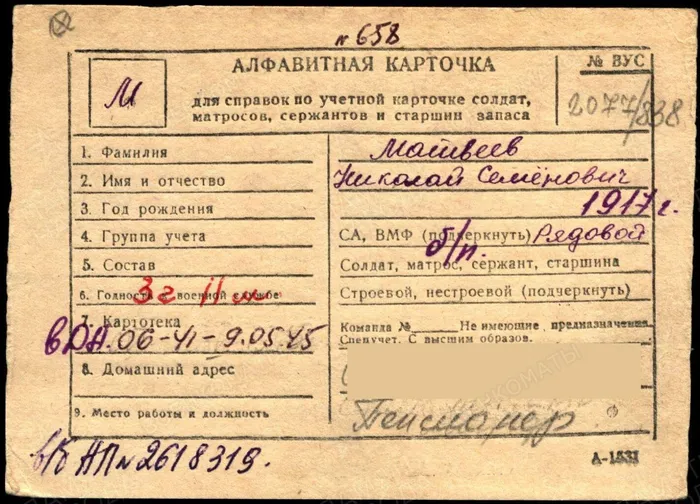 № 658
М
АЛФАВИТНАЯ КАРТОЧКА
для справок по учетной карточке солдат,
матросов, сержантов и старшин запаса
№ ВУС
2077/838
1. Фамилия Матвеев
2. Имя и отчество Николай Семёнович
3. Год рождения 1917 г.
4. Группа учета СА, ВМФ (подчеркнуть) Рядовой
б/п.
5. Состав Солдат, матрос, сержант, старшина
6. Годность к военной службе Строевой, нестроевой (подчеркнуть)
3 г 11 м.
7. Картотека Команда № Не имеющие, предназначения
Спецучет. С высшим образов.
06-41-9.05.45
8. Домашний адрес
9. Место работы и должность Пенсионер
в/б НП № 2618319.
А-1531